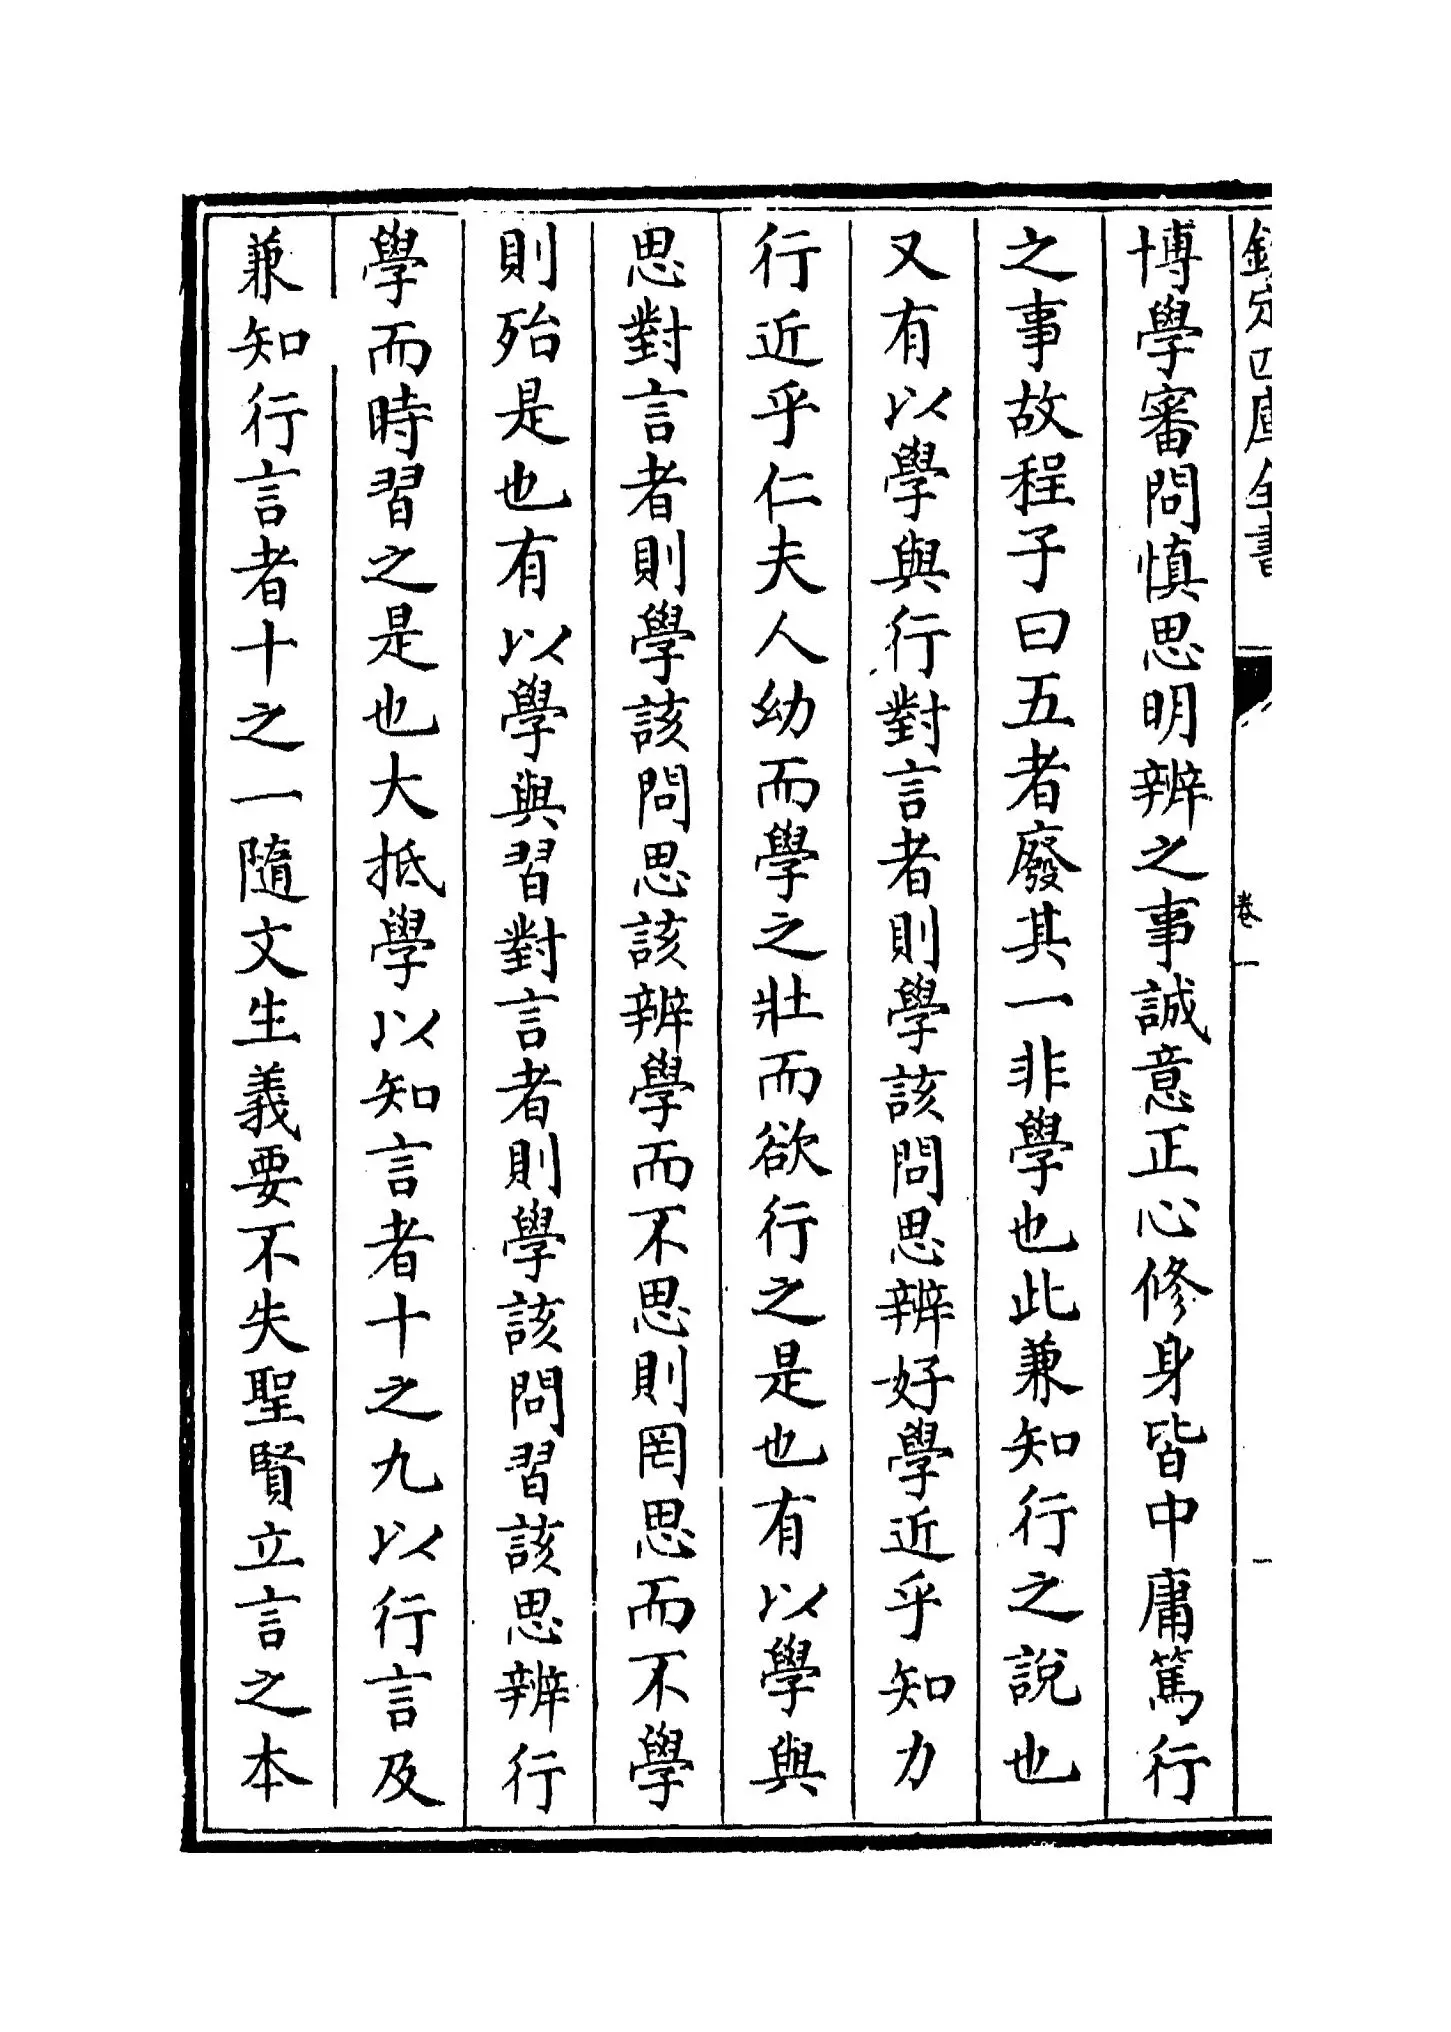 欽定四庫全書
卷一
一
博學審問慎思明辨之事誠意正心修身皆中庸篤行
之事故程子曰五者廢其一非學也此兼知行之說也
又有以學與行對言者則學該問思辨好學近乎知力
行近乎仁夫人幼而學之壯而欲行之是也有以學與
思對言者則學該問思該辨學而不思則罔思而不學
則殆是也有以學與習對言者則學該問習該思辨行
學而時習之是也大抵學以知言者十之九以行言及
兼知行言者十之一隨文生義要不失聖賢立言之本